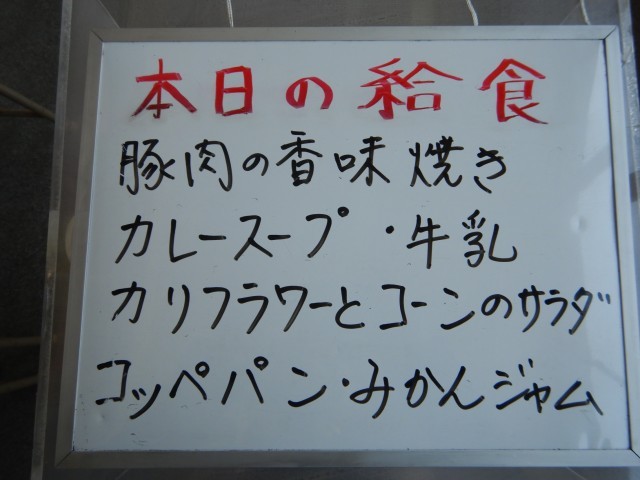 本日の給食
豚肉の香味焼き
カレースープ・牛乳
カリフラワーとコーンのサラダ
コッペパン・みかんジャム